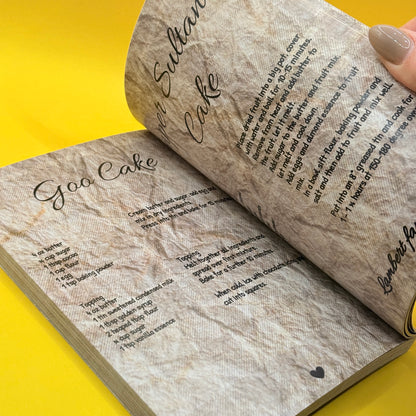 Goo Cake
4 oz butter
½ cup sugar
1 tbsp cocoa
1 cup flour
1 egg
1 tsp baking powder
Cream butter and sugar, add egg and
Topping
4 oz butter
1 tin sweetened condensed milk
1 tbsp golden syrup
2 heaped tbsp flour
4 oz sugar
1 tsp vanilla essence
Topping
Melt together all ingredients and
spread over first mixture.
Bake for a further 15 minutes
when cold, ice with chocolate
cut into squares.
Sultan
Cake
Place dried fruit into a big pot, cover
with water and boil for 10-15 minutes.
Remove from heat and add butter to
the fruit. Let it melt.
Add sugar to the butter and fruit mix.
Let melt and cool down.
Add eggs and almond essence to fruit
In a bowl sift flour, baking powder and
salt and then add to fruit and mix well.
Put into an 8" greased tin and cook for
1 - 1 ¼ hours at 150-180 degrees
Lambert